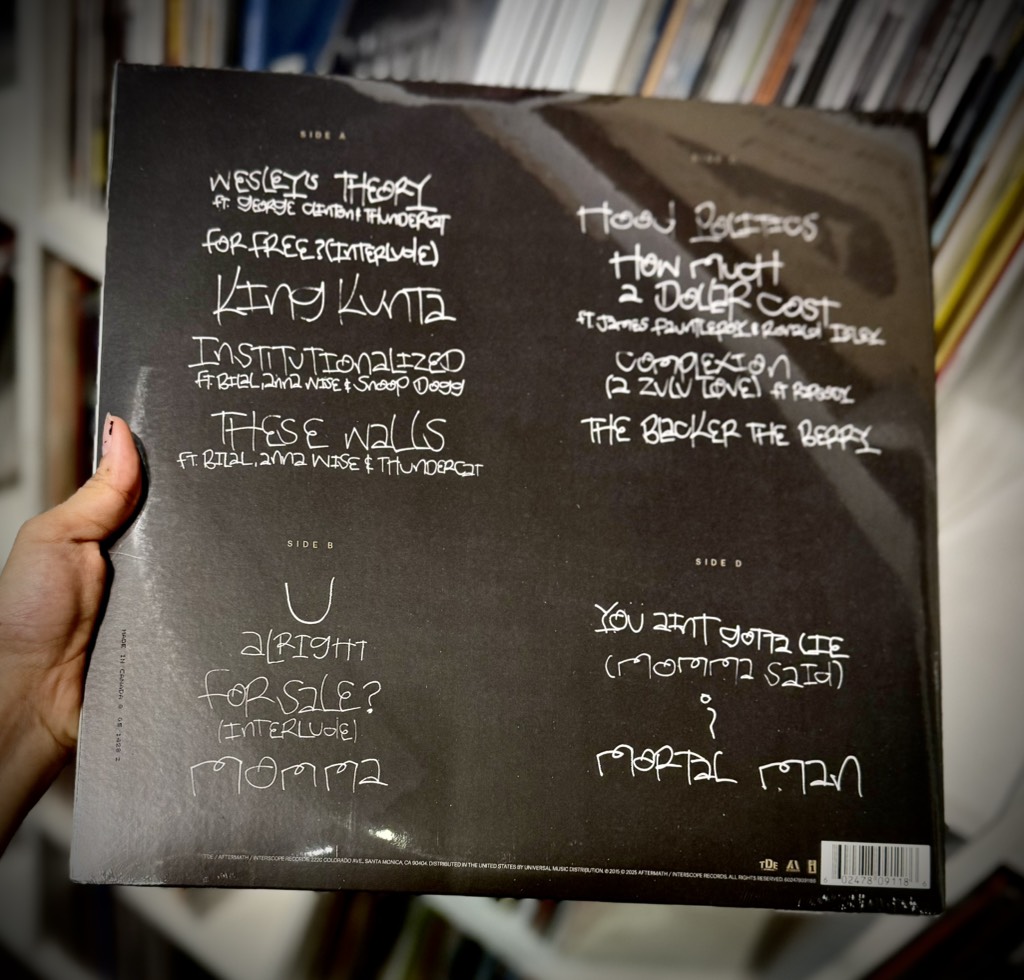 SIDE A
WESLEY's THEORY
ft. GEORGE CLINTON & THUNDERCAT
FOR FREE? (INTERLUDE)
King Kunta
InsTITUTIonaLIZED
ft BILaL, anna WISE & Snoop Dogg
THESE WaLLS
ft. BILaL, anna WISE & THUNDERCaT
SIDE B
U
aLRIGHT
FOR SaLE?
(INTERLUDE)
momma
SIDE C
Hood POLITICS
How mucH
a DOLLER COST
ft. James Fauntleroy & Ronald Isley
COMPLEXION
(a ZULU LOVE) ft RAPSODY
THE BLACKER THE BERRY
SIDE D
YOU aInT goTTa LIE
(momma SaId)
i
mORTaL man
MADE IN CANADA
TDE / AFTERMATH / INTERSCOPE RECORDS, 2220 COLORADO AVE., SANTA MONICA, CA 90404. DISTRIBUTED IN THE UNITED STATES BY UNIVERSAL MUSIC DISTRIBUTION. ℗ 2015 © 2025 AFTERMATH / INTERSCOPE RECORDS. ALL RIGHTS RESERVED.
TDE
02478 09118